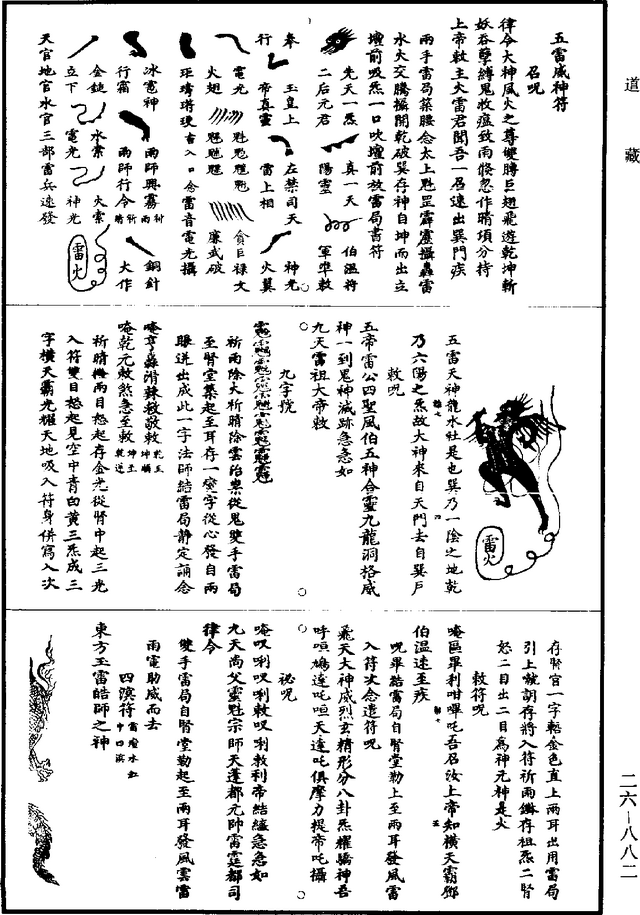 道藏
五雷威神符
召呪
律令大神風火之尊雙膊巨翅飛遊乾坤斬
妖吞孽縛鬼收瘟致雨倏忽作晴頃分持
上帝敕主火雷君聞吾一召速出巽門疾
兩手雷局築腰念太上魁罡霹靂攝轟雷
水火交騰攝開乾破巽存神自坤而出立
壇前吸炁一口吹壇前放雷局書符
先天一炁
真一天
伯溫符
二后元君
陽靈
軍準敕
奉
玉皇上
左禁司天
神光
行
帝真靈
雷上相
火翼
電光
貪巨祿文
火翅
廉武破
念雷音電光攝
冰電神
雨師興霧
銅針
行霜
雨師行令
大作
金鎚
水索
火索
立下
電光
神光
雷火
天官地官水官三部雷兵速發
五雷天神龍水社是也巽乃一陰之地乾
乃六陽之炁故大神來自天門去自巽戶
雷火
敕呪
五帝雷公四聖風伯五神合靈九龍洞格威
神一到鬼神滅跡急急如
九天雷祖大帝敕
九字號
祈雨除大祈晴除雲治祟從鬼雙手雷局
至腎堂築起至耳存一字從心發自兩
眼迸出成此一字法師結雷局靜定誦念
唵乾元敕煞急至敕
祈晴兩目怒起存金光從腎中起三光
入符雙目怒起見空中青白黃三炁成三
字橫天霸光耀天地吸入符身倂寫入次
存腎宮一字輅金色直上兩耳出用雷局
引上存將入符祈雨存祖炁二腎
怒二目出二目爲神元神是火
敕符呪
唵區畢利咁嗶吒吾召汝上帝知橫天霸鄧
伯溫速至疾
呪畢結雷局自腎堂勒上至兩耳發風雷
入符次念造符呪
飛天大神威烈玄精形分八卦炁耀驕神吾
呼咺鳩達吒咺天達吒俱摩力提帝吒攝
祕呪
唵㕛唎㕛唎敕㕛唎敕利帝結縕急急如
九天尚父靈魁宗師天蓬都元帥雷霆都司
律令
雙手雷局自腎堂勒起至兩耳發風雲雷
雨電助威而去
四溟符
東方玉雷皓師之神
二六—八八二